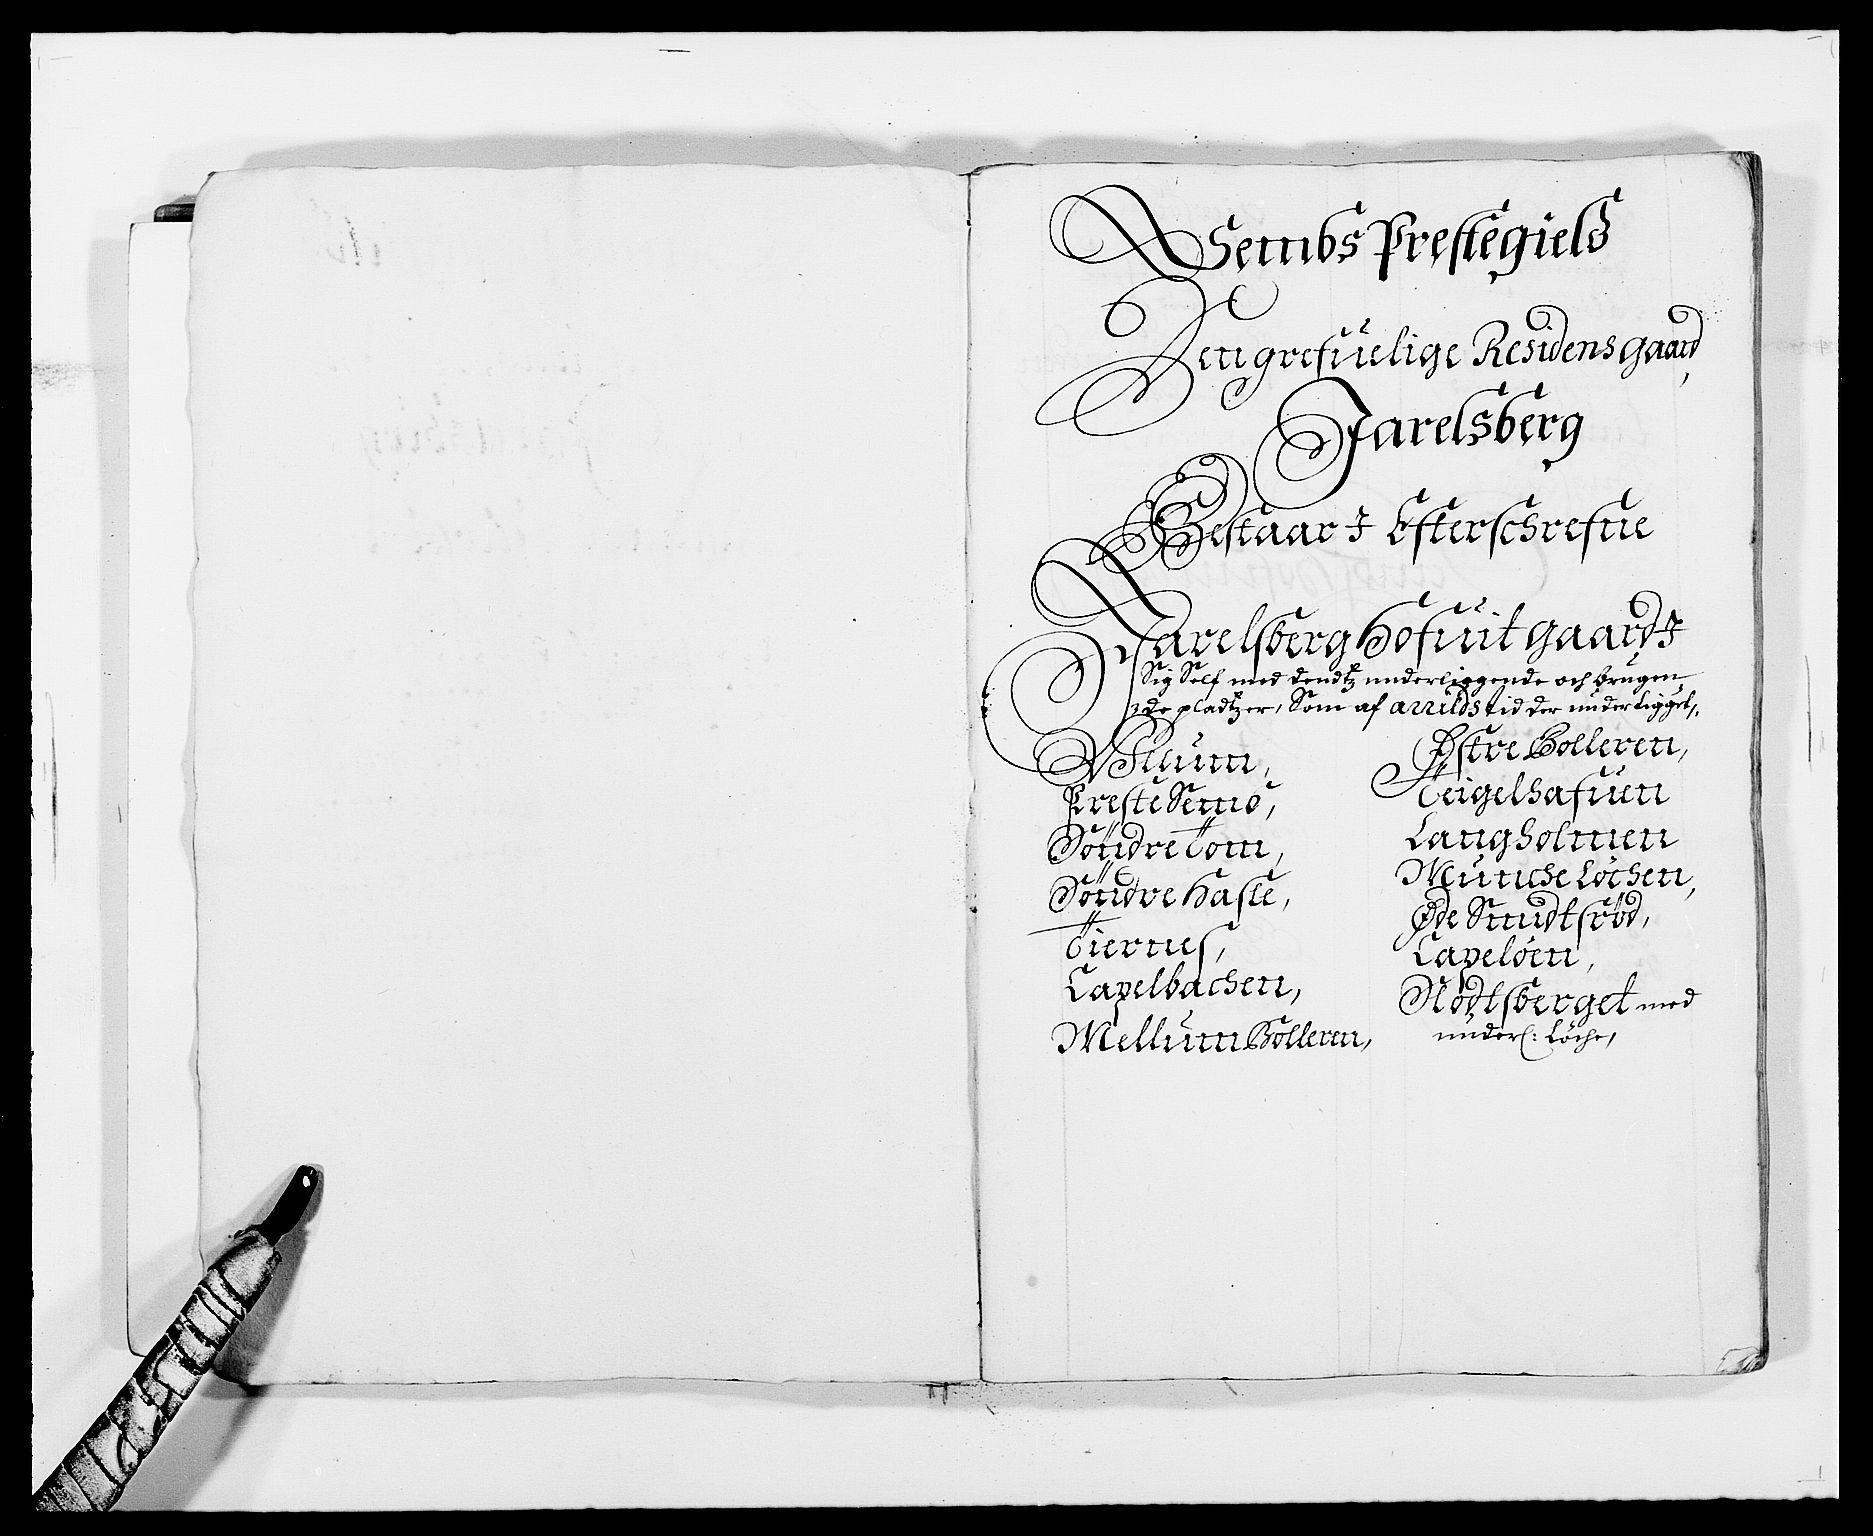 Sembs Prestegield
Den grefuelige Residens gaard,
Jarelsberg
Bestaar J Efterschrefue
Jarelsberg Hofuit gaard J
Sig Self med dendtz underliggende och brugen
de pladtzer, Som af arrilds tid der underligget,
Vellum,
Preste Semb,
Söndre Tom,
Söndre Hasle,
Tiernes,
Capelbachen,
Mellum Bolleren,
Østre Bolleren,
Teigelhafuen
Langholmen
Munche Löchen,
Øde Smidtsröd,
Capelöen,
Slodtsberget med
under: Löche,